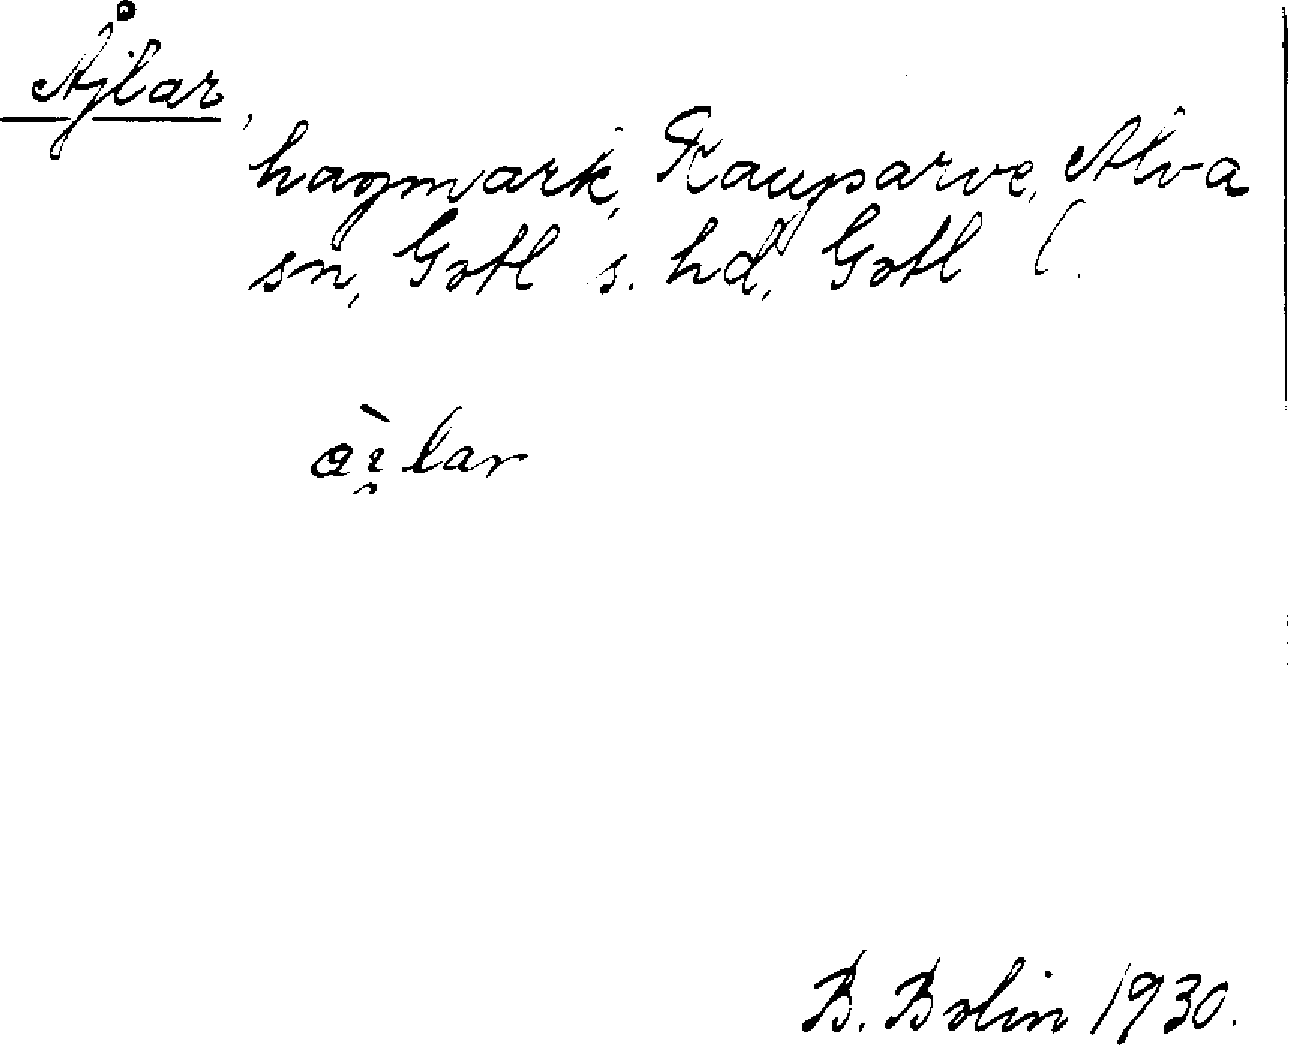 Åjlar,
hagmark, Kauparve, Alva
sn, Gotl s. hd, Gotl l.
ài̯lar
B. Bolin 1930.